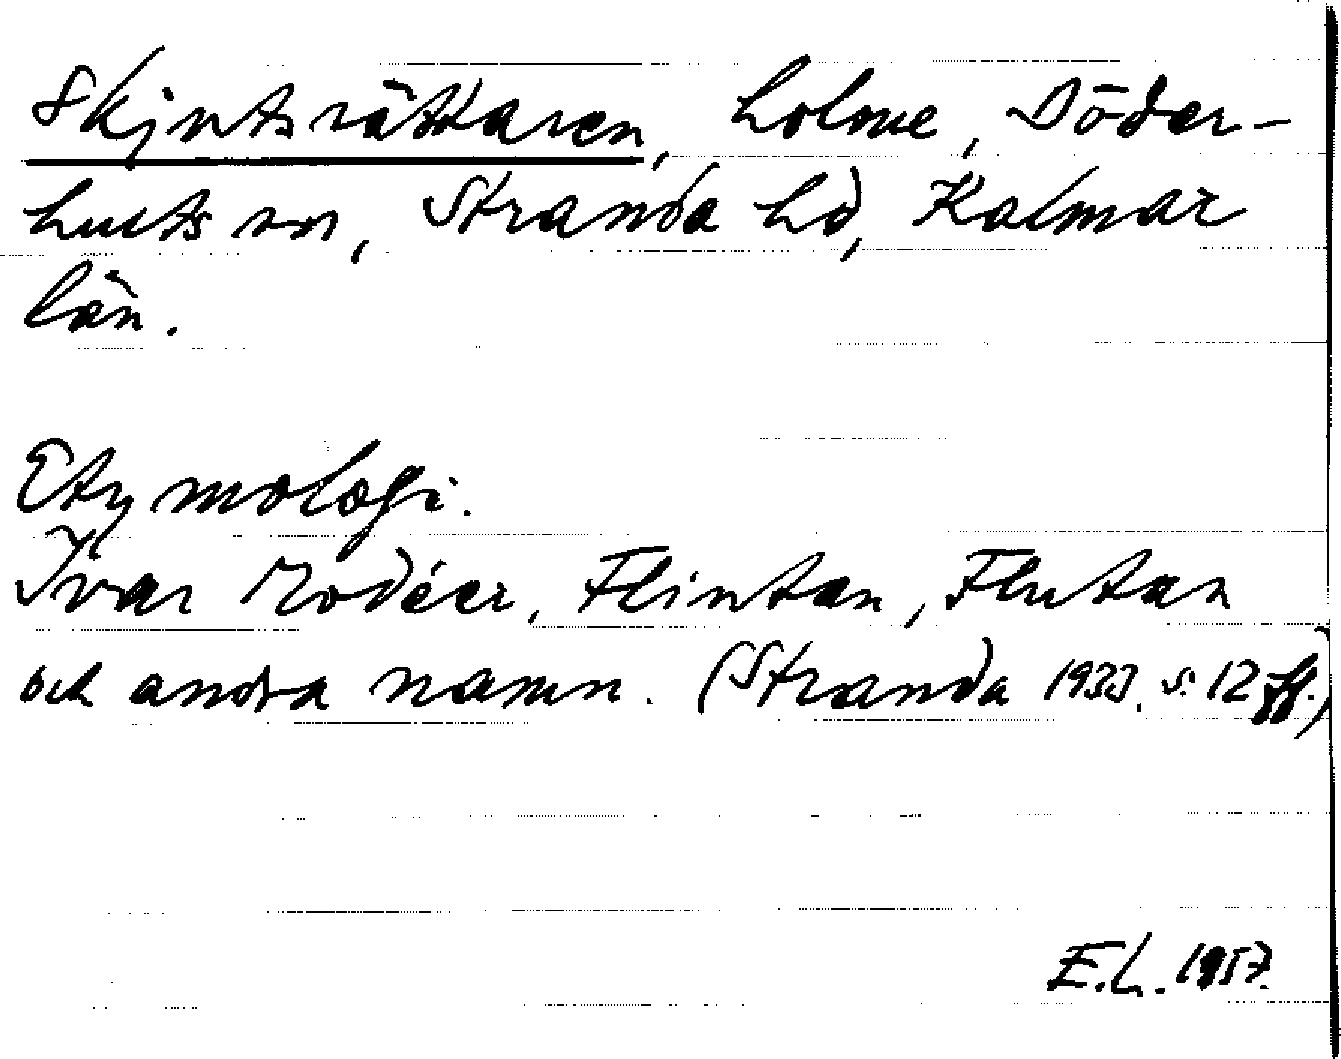 Skjutsrättaren, holme, Döder-
hults sn, Stranda hd, Kalmar
län.
Etymologi.
Ivar Modéer, Flintan, Flutan
och andra namn. (Stranda 1933. s. 12 ff.)
E.L. 1957.